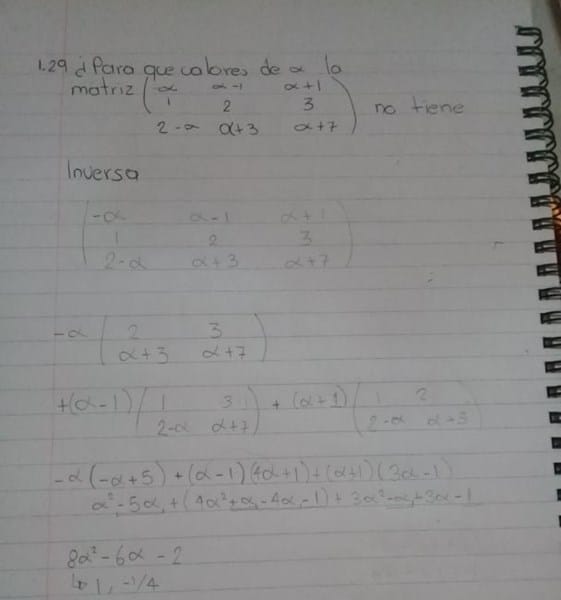 1.29 ¿Para que valores de α la
matriz (-α α-1 α+1
1 2 3
2-α α+3 α+7) no tiene
Inversa
(-α α-1 α+1
1 2 3
2-α α+3 α+7)
-α (2 3
α+3 α+7)
+(α-1) (1 3
2-α α+7) + (α+1) (1 2
2-α α+3)
-α(-α+5) + (α-1)(4α+1) + (α+1)(3α-1)
α²-5α + (4α²+α-4α-1) + 3α²-α+3α-1
8α²-6α-2
↳ 1, -1/4